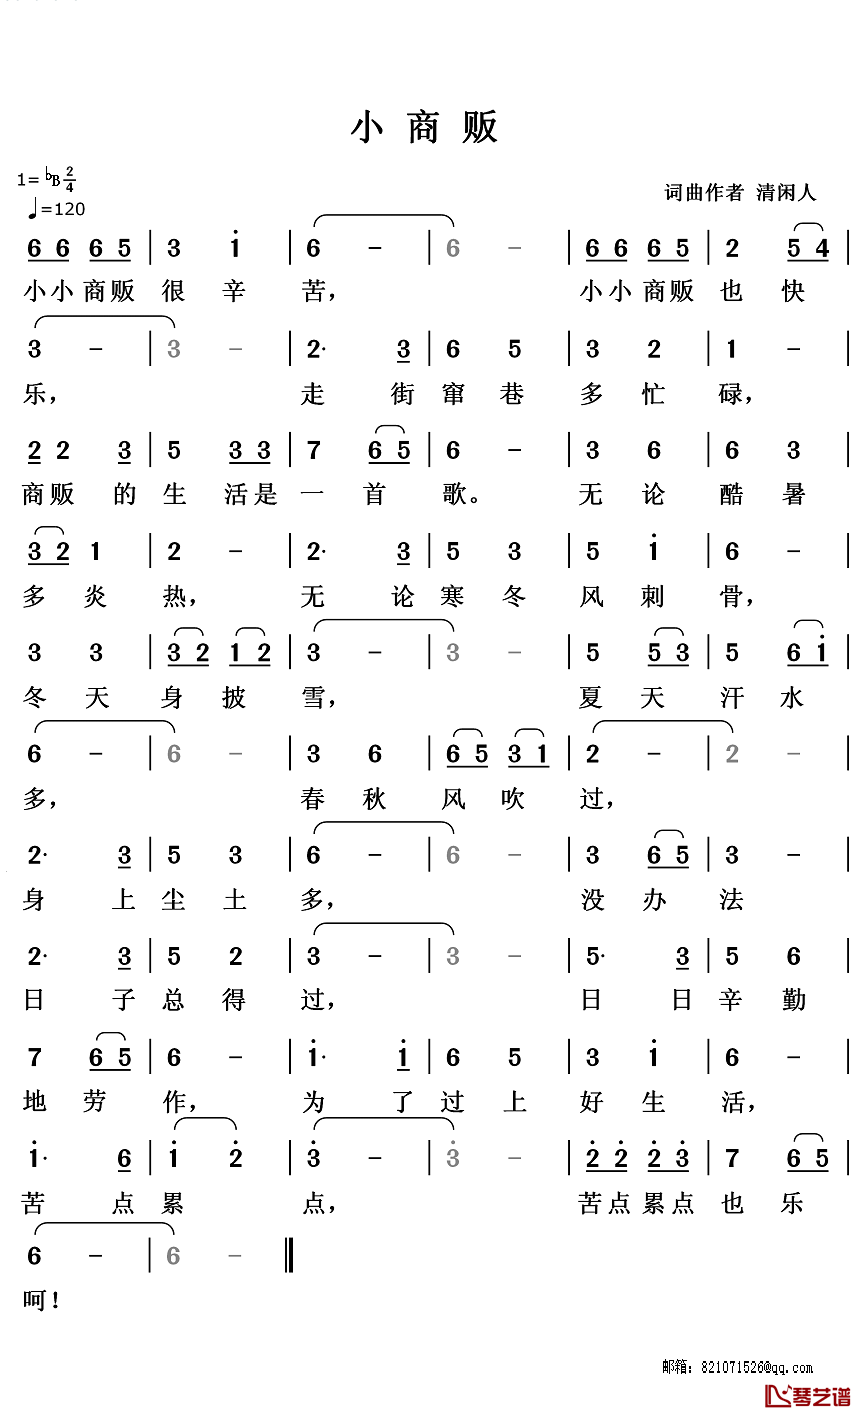 小 商 贩
1= ♭B 2/4
♩=120
词曲作者 清闲人
6 6 6 5 | 3 i̇ | 6 - | 6 - | 6 6 6 5 | 2 5 4 |
小小商贩 很 辛 苦, 小小商贩 也 快
3 - | 3 - | 2· 3 | 6 5 | 3 2 | 1 - |
乐, 走 街 窜 巷 多 忙 碌,
2 2 3 | 5 3 3 | 7 6 5 | 6 - | 3 6 | 6 3 |
商贩 的 生 活是 一 首 歌。 无 论 酷 暑
3 2 1 | 2 - | 2· 3 | 5 3 | 5 1̇ | 6 - |
多 炎 热, 无 论 寒 冬 风 刺 骨,
3 3 | 3 2 1 2 | 3 - | 3 - | 5 5 3 | 5 6 1̇ |
冬 天 身 披 雪, 夏 天 汗 水
6 - | 6 - | 3 6 | 6 5 3 1 | 2 - | 2 - |
多, 春 秋 风 吹 过,
2· 3 | 5 3 | 6 - | 6 - | 3 6 5 | 3 - |
身 上 尘 土 多, 没 办 法
2· 3 | 5 2 | 3 - | 3 - | 5· 3 | 5 6 |
日 子 总 得 过, 日 日 辛 勤
7 6 5 | 6 - | 1̇· 1̇ | 6 5 | 3 1̇ | 6 - |
地 劳 作, 为 了 过 上 好 生 活,
1̇· 6 | 1̇ 2̇ | 3̇ - | 3̇ - | 2̇ 2̇ 2̇ 3̇ | 7 6 5 |
苦 点 累 点, 苦点累点 也 乐
6 - | 6 - ‖
呵!
邮箱: 821071526@qq.com
琴艺谱